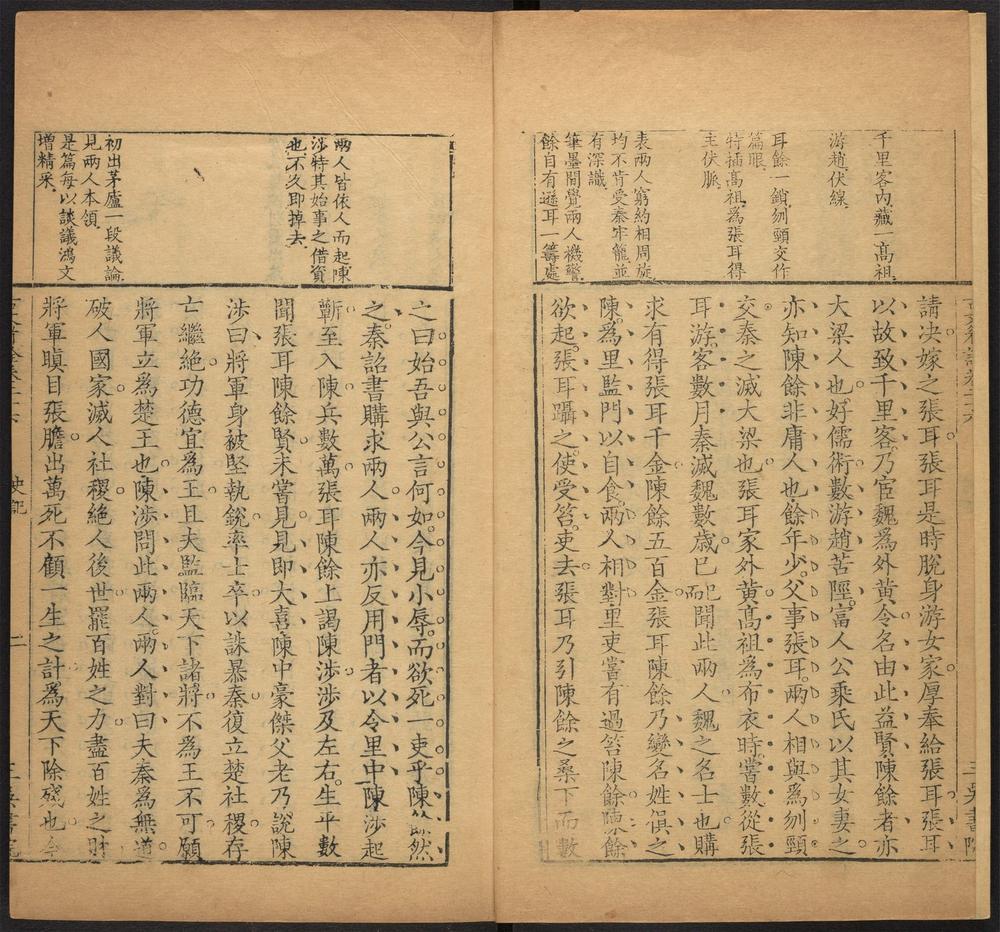 千里客內藏一高祖
游趙伏線
耳餘一鎖刎頸交作
篇眼
特插高祖為張耳得
主伏脈
表兩人窮約相周旋
均不肯受秦牢籠並
有深識
筆墨間覺兩人機警
餘自有遜耳一籌處
請决嫁之張耳張耳是時脫身游女家厚奉給張耳張耳
以故致千里客乃宦魏為外黃令名由此益賢陳餘者亦
大梁人也好儒術數游趙苦陘富人公乘氏以其女妻之
亦知陳餘非庸人也餘年少父事張耳兩人相與為刎頸
交秦之滅大梁也張耳家外黃高祖為布衣時嘗數從張
耳游客數月秦滅魏數歲已而聞此兩人魏之名士也購
求有得張耳千金陳餘五百金張耳陳餘乃變名姓俱之
陳為里監門以自食兩人相對里吏嘗有過笞陳餘陳餘
欲起張耳躡之使受笞吏去張耳乃引陳餘之桑下而數
兩人皆依人而起陳
涉特其始事之借資
也不久即掉去
初出茅廬一段議論
見兩人本領
是篇每以談議鴻文
增精采
之曰始吾與公言何如今見小辱而欲死一吏乎陳餘然
之秦詔書購求兩人兩人亦反用門者以令里中陳涉起
蘄至入陳兵數萬張耳陳餘上謁陳涉涉及左右生平數
聞張耳陳餘賢未嘗見見即大喜陳中豪傑父老乃說陳
涉曰將軍身被堅執銳率士卒以誅暴秦復立楚社稷存
亡繼絕功德宜為王且夫監臨天下諸將不為王不可願
將軍立為楚王也陳涉問此兩人兩人對曰夫秦為無道
破人國家滅人社稷絕人後世罷百姓之力盡百姓之財
將軍瞋目張膽出萬死不顧一生之計為天下除殘也今
史記
二